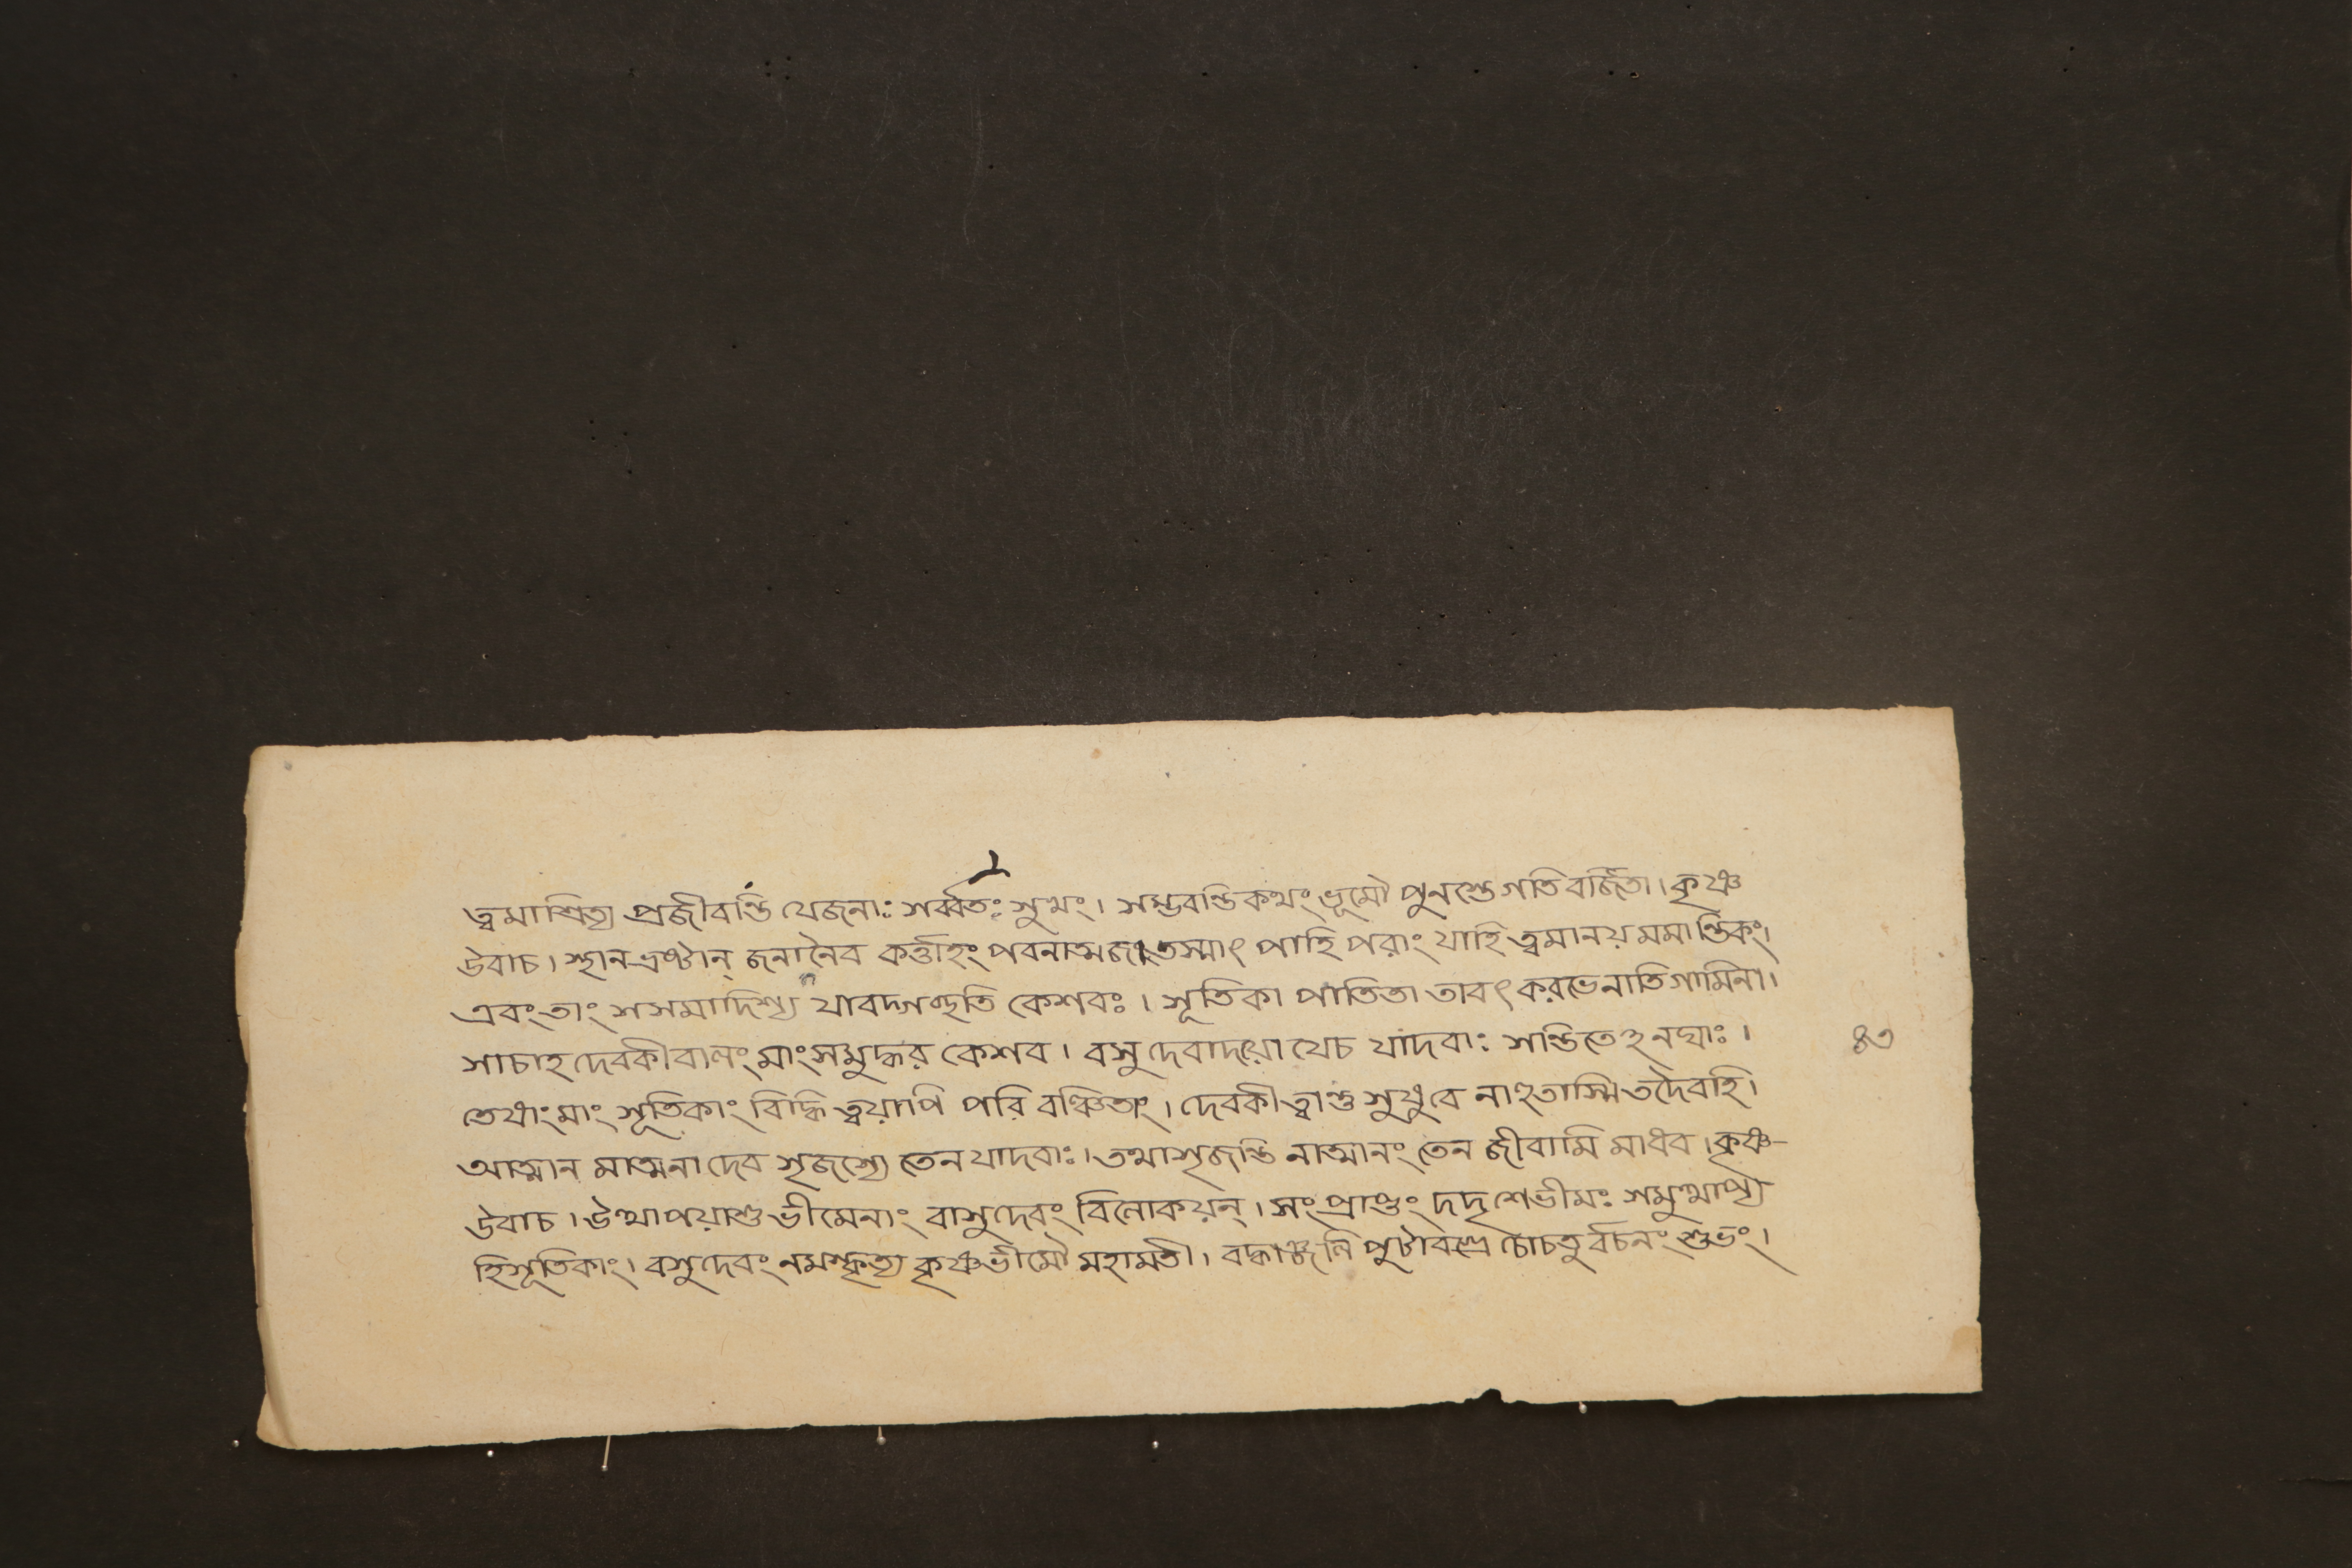 ত্বমাশ্রিত্য প্রজীবন্তি যেজনাঃ সর্ব্বতঃ সুখং। সম্ভবন্তি কথং ভূমৌ পুনস্তে গতি বর্জিতা। কৃষ্ণ
উবাচ। স্থানভ্রষ্টান্ জনানৈব কর্ত্তাহং পবনাত্মজ। তস্মাৎ পাহি পরাং যাহি ত্বমানয় মমান্তিকং।
এবং তাং সসমাদিশ্য যাবদ্গচ্ছতি কেশবঃ। সূতিকা পাতিতা তাবৎ করভেনাতিগামিনা।
সাচাহ দেবকীবালং মাংসমুদ্ধর কেশব। বসুদেবাদয়ো যেচ যাদবাঃ সন্তিতেঽনঘাঃ।
তেষাংমাং সূতিকাং বিদ্ধি ত্বয়াপি পরি বঞ্চিতাং। দেবকী ত্বান্তু সুষুবে নাহূতাস্মি তদৈবহি।
আত্মান মাত্মনা দেব সৃজস্যে তেন যাদবাঃ। তথাসৃজন্তি নাত্মানং তেন জীবামি মাধব। কৃষ্ণ-
উবাচ। উত্থাপয়াশু ভীমেনাং বাসুদেবং বিলোকয়ন্। সংপ্রাপ্তং দদৃশেভীমঃ সমুত্থাপ্য
হিসূতিকাং। বসুদেবং নমস্কৃত্য কৃষ্ণভীমৌ মহামতী। বদ্ধাঞ্জলি পুটাবগ্রে চোচতু র্বচনং শুভং।
৪৩